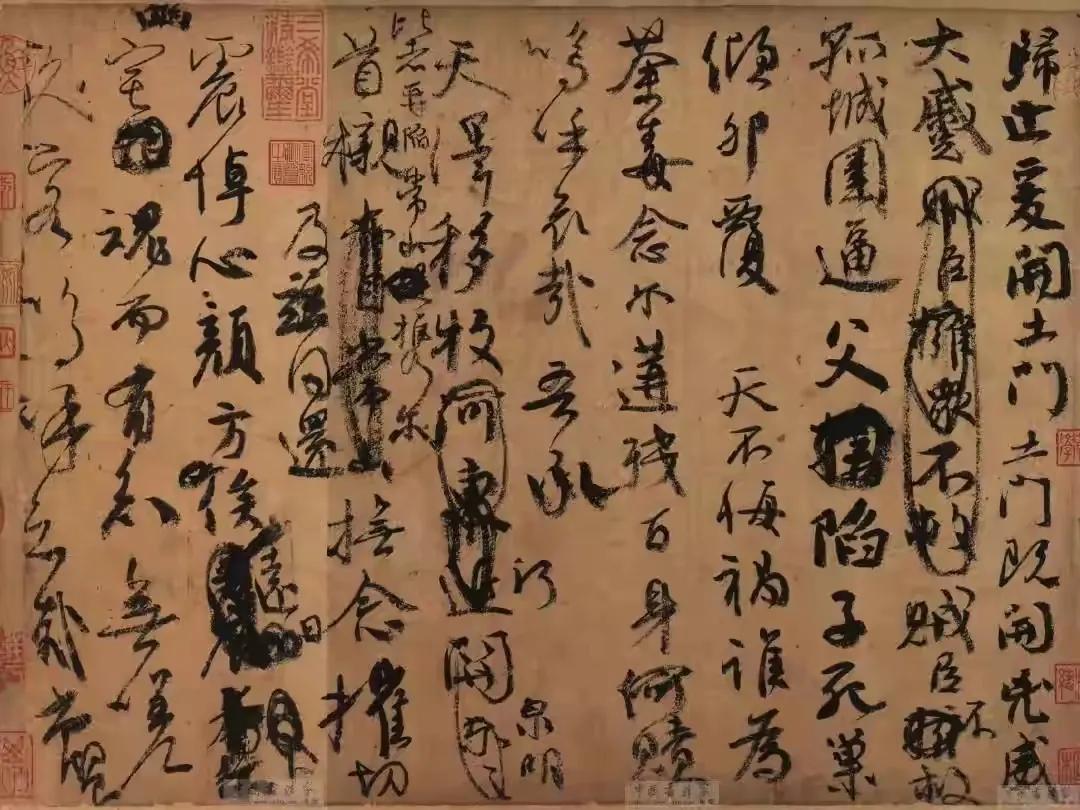 歸止爰開土門土門既開兇威
大蹙賊臣擁衆不救賊臣不救
孤城圍逼父陷子死巢
傾卵覆天不悔禍誰為
荼毒念爾遘殘百身何贖
嗚乎哀哉吾承
天澤移牧河東近河關泉明
比者再陷常山携爾
首櫬及茲同還撫念摧切
震悼心顏方俟遠日
宅魂而有知無嗟
久客嗚呼哀哉尚饗